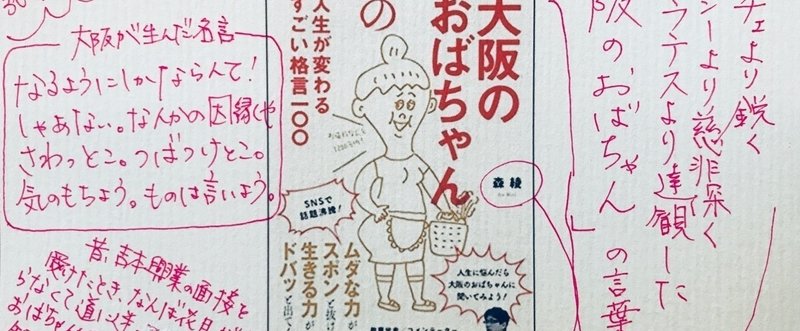 チェより鋭く
シーより慈悲深く
ラテスより達観した
阪のおばちゃん」の言葉
大阪の
おばちゃん
の
人生が変わる
すごい格言一〇〇
森 綾
SNSで
話題沸騰!
ムダな力が
スポンと抜け
生きる力が
ドバッと出て
人生に悩んだら
大阪のおばちゃんに
聞いてみよう!
大阪が生んだ名言
なるようにしかならんて!
しゃあない。なんかの因縁じゃ
さわっとこ。つばつけとこ。
気のもちよう。ものは言いよう。
昔、吉本興業の面接を
受けたとき、なんば花月が
らなくて道に迷
おばちゃん